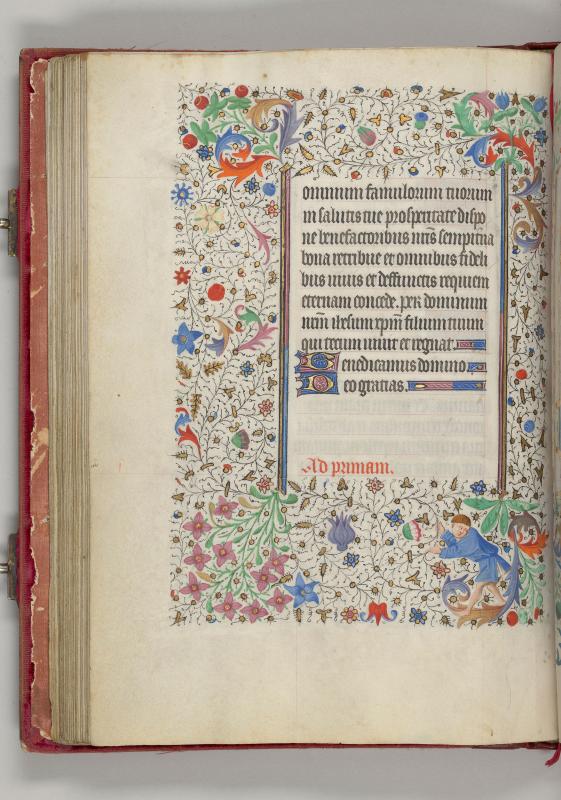 omnium famulorum tuorum
in salutis tue prosperitate dispo
ne benefactoribus nr̃is sempit̃na
bona retribue et omnibus fideli
bus uiuis et deffunctis requiem
eternam concede. per dominum
nr̃m ih̃esum xp̃m filium tuum
qui tecum uiuit et regnat.
Benedicamus domino
Deo gratias.
Ad primam.